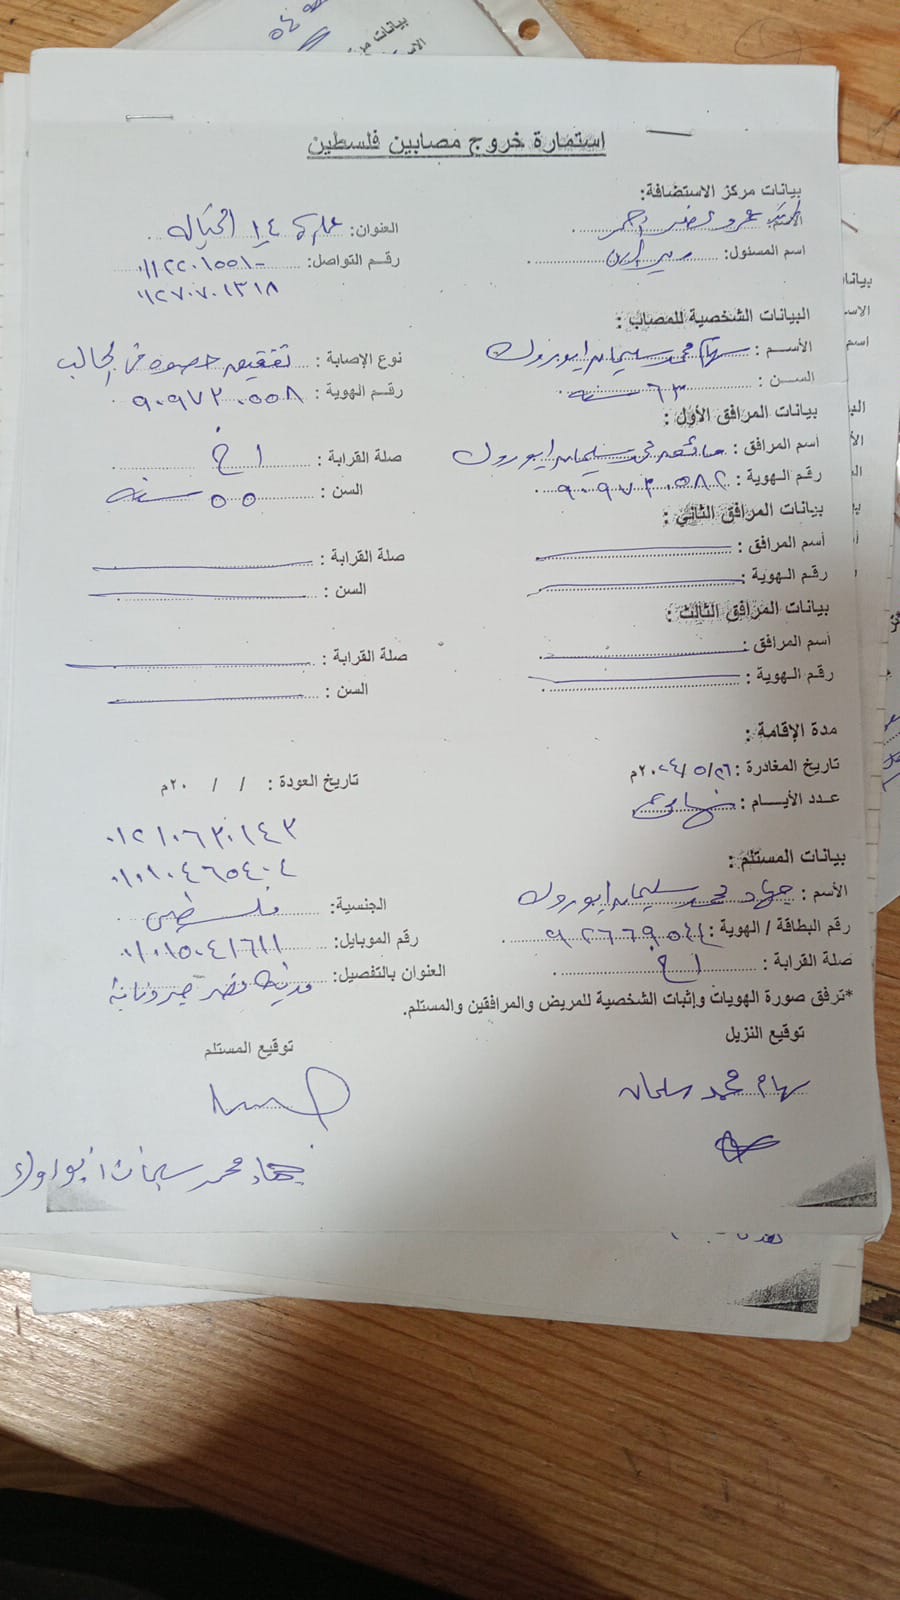 استمارة خروج مصابين فلسطين
بيانات مركز الاستضافة:
العنوان: عمارة ١٤ الخيالة
اسم المسئول:
رقم التواصل: ٠١١٢٢٠١٥٥١٠
٠١٢٧٠٧٠١٣١٨
البيانات الشخصية للمصاب :
الأســم : سهام محمد سليمان ابوروك
نوع الإصابة : تفتيت حصوة في الحالب
السـن : ٦٣ سنة
رقـم الهوية : ٩٠٩٧٣٠٥٥٨
بيانات المرافق الأول :
اسم المرافق : محمد سليمان ابوروك
صلة القرابة : اخ
رقـم الـهوية : ٩٠٩٧٣٠٥٨٢
السن : ٥٥ سنة
بيانات المرافق الثاني :
أسم المرافق :
صلة القرابة :
رقـم الـهوية :
السن :
بيانات المرافق الثالث :
اسم المرافق :
صلة القرابة :
رقـم الـهوية :
السن :
مدة الإقامة :
تاريخ المغادرة : ٢٠٢٤/٥/٢٦م
تاريخ العودة : / / ٢٠م
عـدد الأيـــام :
٠١٢١٠٦٣٠١٤٣
٠١٠١٠٤٦٥٤٠٤
بيانات المستلم :
الأسـم : جهاد محمد سليمان ابوروك
الجنسية: فلسطيني
رقم البطاقة / الهوية :
رقم الموبايل: ٠١٠١٥٠٤١٦١١
صلة القرابة : اخ
العنوان بالتفصيل: مدينة نصر
*ترفق صورة الهويات وإثبات الشخصية للمريض والمرافقين والمستلم.
توقيع النزيل
توقيع المستلم
سهام محمد سلمان
جهاد محمد سليمان ابوروك